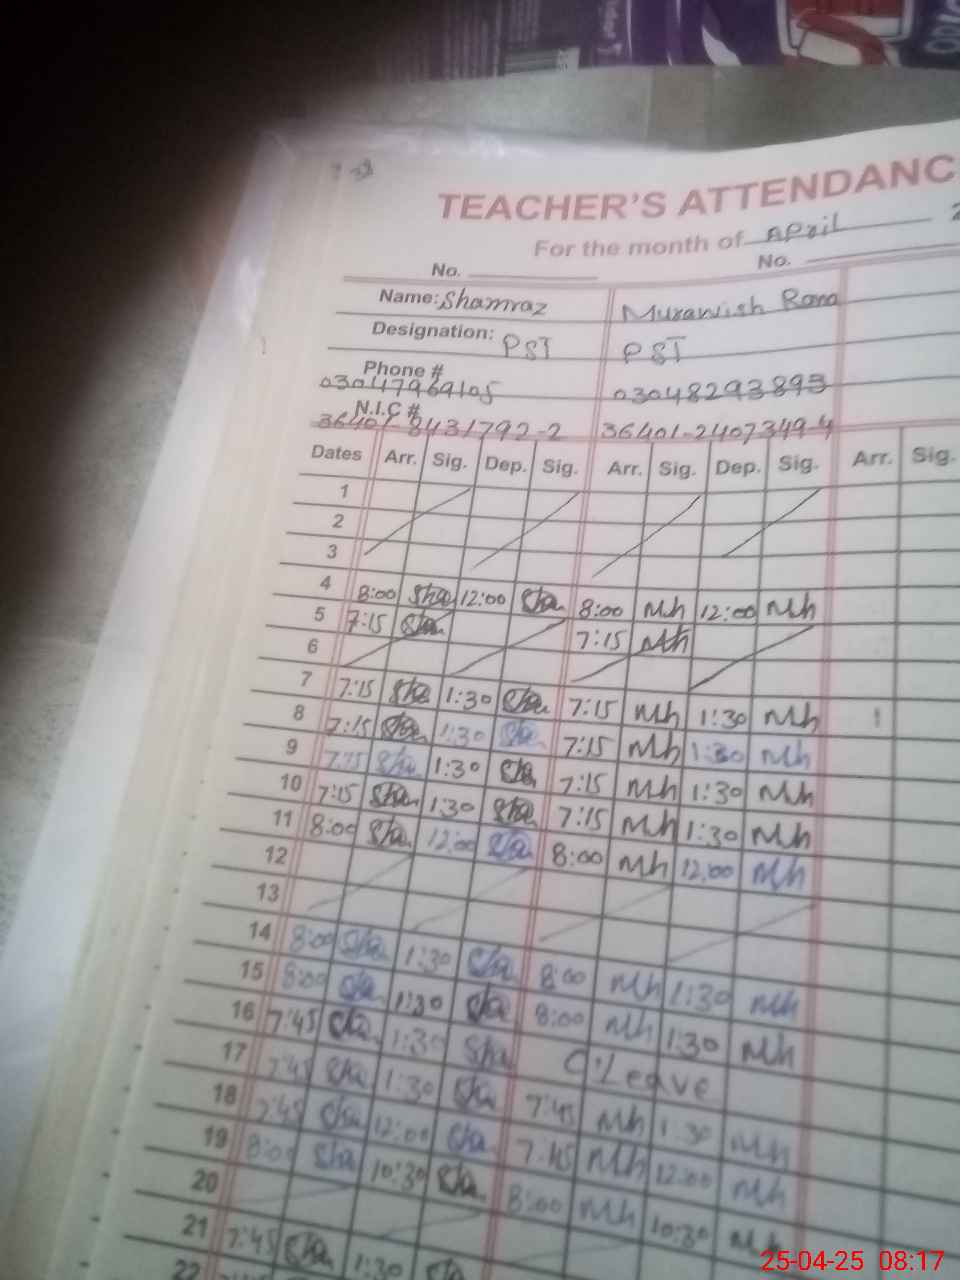 TEACHER'S ATTENDANC
For the month of April 2
No. No.
Name: Shamraz Murawish Rana
Designation: PST PST
Phone # 03047969105 03048293893
N.I.C # 36401-8431792-2 36401-2407349-4
Dates Arr. Sig. Dep. Sig. Arr. Sig. Dep. Sig. Arr. Sig.
1
2
3
4 8:00 Sha 12:00 Sha 8:00 Mh 12:00 Mh
5 7:15 Sha 7:15 Mh
6
7 7:15 Sha 1:30 Sha 7:15 Mh 1:30 Mh
8 7:15 Sha 1:30 Sha 7:15 Mh 1:30 Mh
9 7:15 Sha 1:30 Sha 7:15 Mh 1:30 Mh
10 7:15 Sha 1:30 Sha 7:15 Mh 1:30 Mh
11 8:00 Sha 12:00 Sha 8:00 Mh 12:00 Mh
12
13
14 8:00 Sha 1:30 Sha 8:00 Mh 1:30 Mh
15 8:00 Sha 1:30 Sha 8:00 Mh 1:30 Mh
16 7:45 Sha 1:30 Sha C'Leave
17 7:45 Sha 1:30 Sha 7:45 Mh 1:30 Mh
18 7:45 Sha 12:00 Sha 7:45 Mh 12:00 Mh
19 8:00 Sha 10:30 Sha 8:00 Mh 10:30 Mh
20
21 7:45 Sha 1:30 Sha
22
25-04-25 08:17